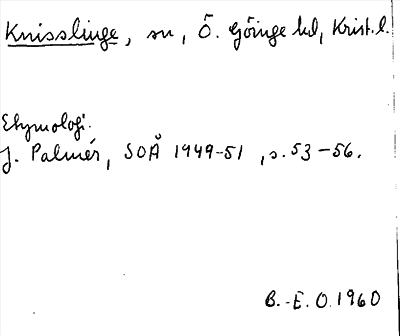 Knisslinge, sn, Ö. Göinge hd, Krist. l.
Etymologi.
J. Palmér, SOÅ 1949-51, s. 53-56.
B.-E. O. 1960